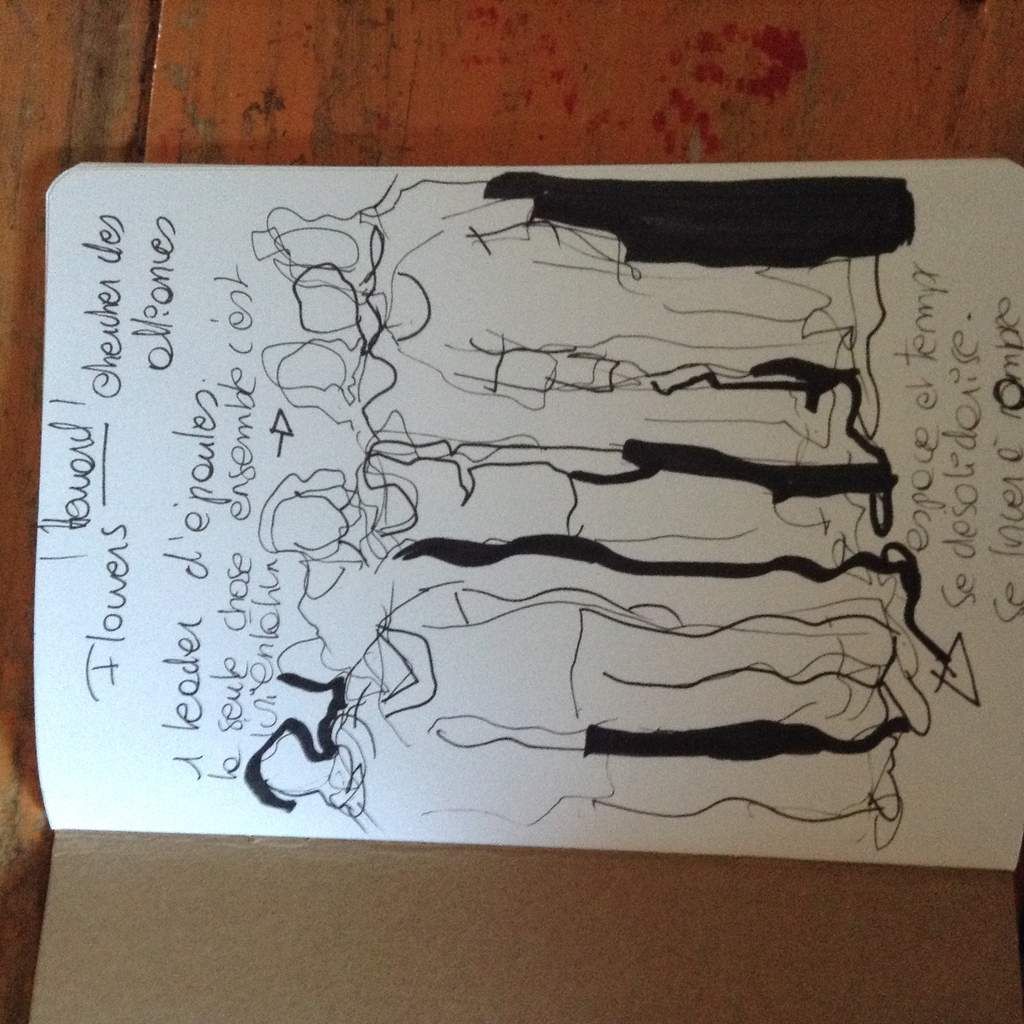 Flowers
chercher des
alliances
1 leader d'épaules
la seule chose ensemble c'est
espace et temps
se désolidarise.
se lover